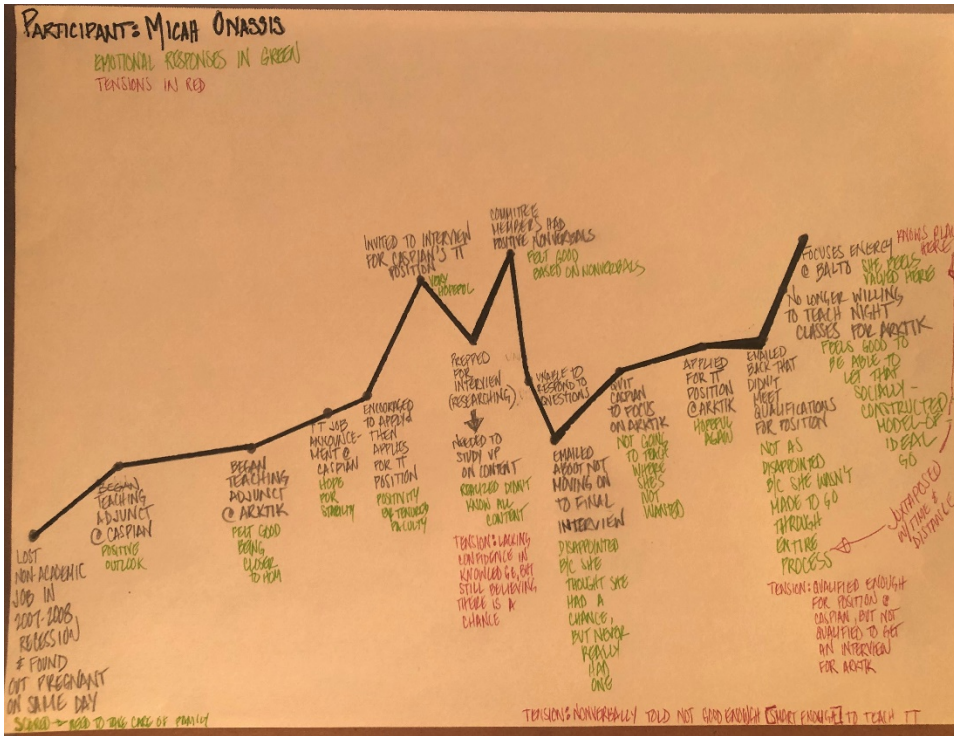 PARTICIPANT: MICAH ONASSIS
EMOTIONAL RESPONSES IN GREEN
TENSIONS IN RED
LOST
NON-ACADEMIC
JOB IN
2007-2008
RECESSION
& FOUND
OUT PREGNANT
ON SAME DAY
SCARED → NEED TO TAKE CARE OF FAMILY
BEGAN
TEACHING
ADJUNCT
@ CASPIAN
POSITIVE
OUTLOOK
BEGAN
TEACHING
ADJUNCT
@ ARKTIK
FELT GOOD
BEING
CLOSER
TO HOM
TT JOB
ANNOUNCE-
MENT @
CASPIAN
HOPE
FOR
STABILITY
ENCOURAGED
TO APPLY &
THEN
APPLIES
FOR TT
POSITION
POSITIVITY
BY TENURED
FACULTY
INVITED TO INTERVIEW
FOR CASPIAN'S TT
POSITION
VERY
HOPEFUL
PREPPED
FOR
INTERVIEW
(RESEARCHING)
NEEDED TO
STUDY UP
ON CONTENT
REALIZED DIDN'T
KNOW ALL
CONTENT
TENSION: LACKING
CONFIDENCE IN
KNOWLEDGE, BUT
STILL BELIEVING
THERE IS A
CHANCE
COMMITTEE
MEMBERS HAD
POSITIVE NONVERBALS
FELT GOOD
BASED ON NONVERBALS
UNABLE TO
RESPOND TO
QUESTIONS
EMAILED
ABOUT NOT
MOVING ON
TO FINAL
INTERVIEW
DISAPPOINTED
B/C SHE
THOUGHT SHE
HAD A
CHANCE,
BUT NEVER
REALLY
HAD
ONE
QUIT
CASPIAN
TO FOCUS
ON ARKTIK
NOT GOING
TO TEACH
WHERE
SHE'S
NOT
WANTED
APPLIED
FOR TT
POSITION
@ ARKTIK
HOPEFUL
AGAIN
EMAILED
BACK THAT
DIDN'T
MEET
QUALIFICATIONS
FOR POSITION
NOT AS
DISAPPOINTED
B/C SHE WASN'T
MADE TO GO
THROUGH
ENTIRE
PROCESS
TENSION: QUALIFIED ENOUGH
FOR POSITION @
CASPIAN, BUT NOT
QUALIFIED TO GET
AN INTERVIEW
FOR ARKTIK
FOCUSES ENERGY
@ BALTO
SHE FEELS
VALUED HERE
KNOWS PLA
HERE
NO LONGER WILLING
TO TEACH NIGHT
CLASSES FOR ARKTIK
FEELS GOOD TO
BE ABLE TO
LET THAT
SOCIALLY-
CONSTRUCTED
MODEL-OF
IDEAL
GO
JUXTAPOSED
IN TIME &
DISTANCE
TENSION: NONVERBALLY TOLD NOT GOOD ENOUGH [SMART ENOUGH] TO TEACH TT